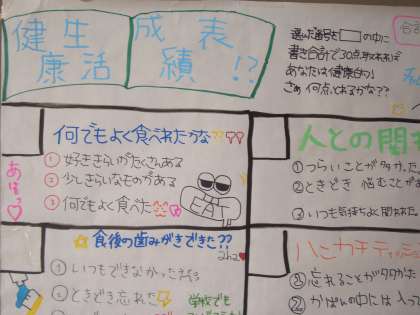 健康
生活
成績
表!?
選んだ番号を□の中に
書き合計で30点取れれば
あなたは健康
さぁ何点とれるかな??
何でもよく食べれたかな
① 好ききらいがたくさんある
② 少しきらいなものがある
③ 何でもよく食べた
人との関
① つらいことが多かった。
② ときどき 悩むことが
③ いつも気持ちよく関われた。
食後の歯みがきできた??
① いつもできなかった
② ときどき忘れた
学校でも
ハンカチティッシュ
① 忘れることが多かった
② かばんの中には入っ